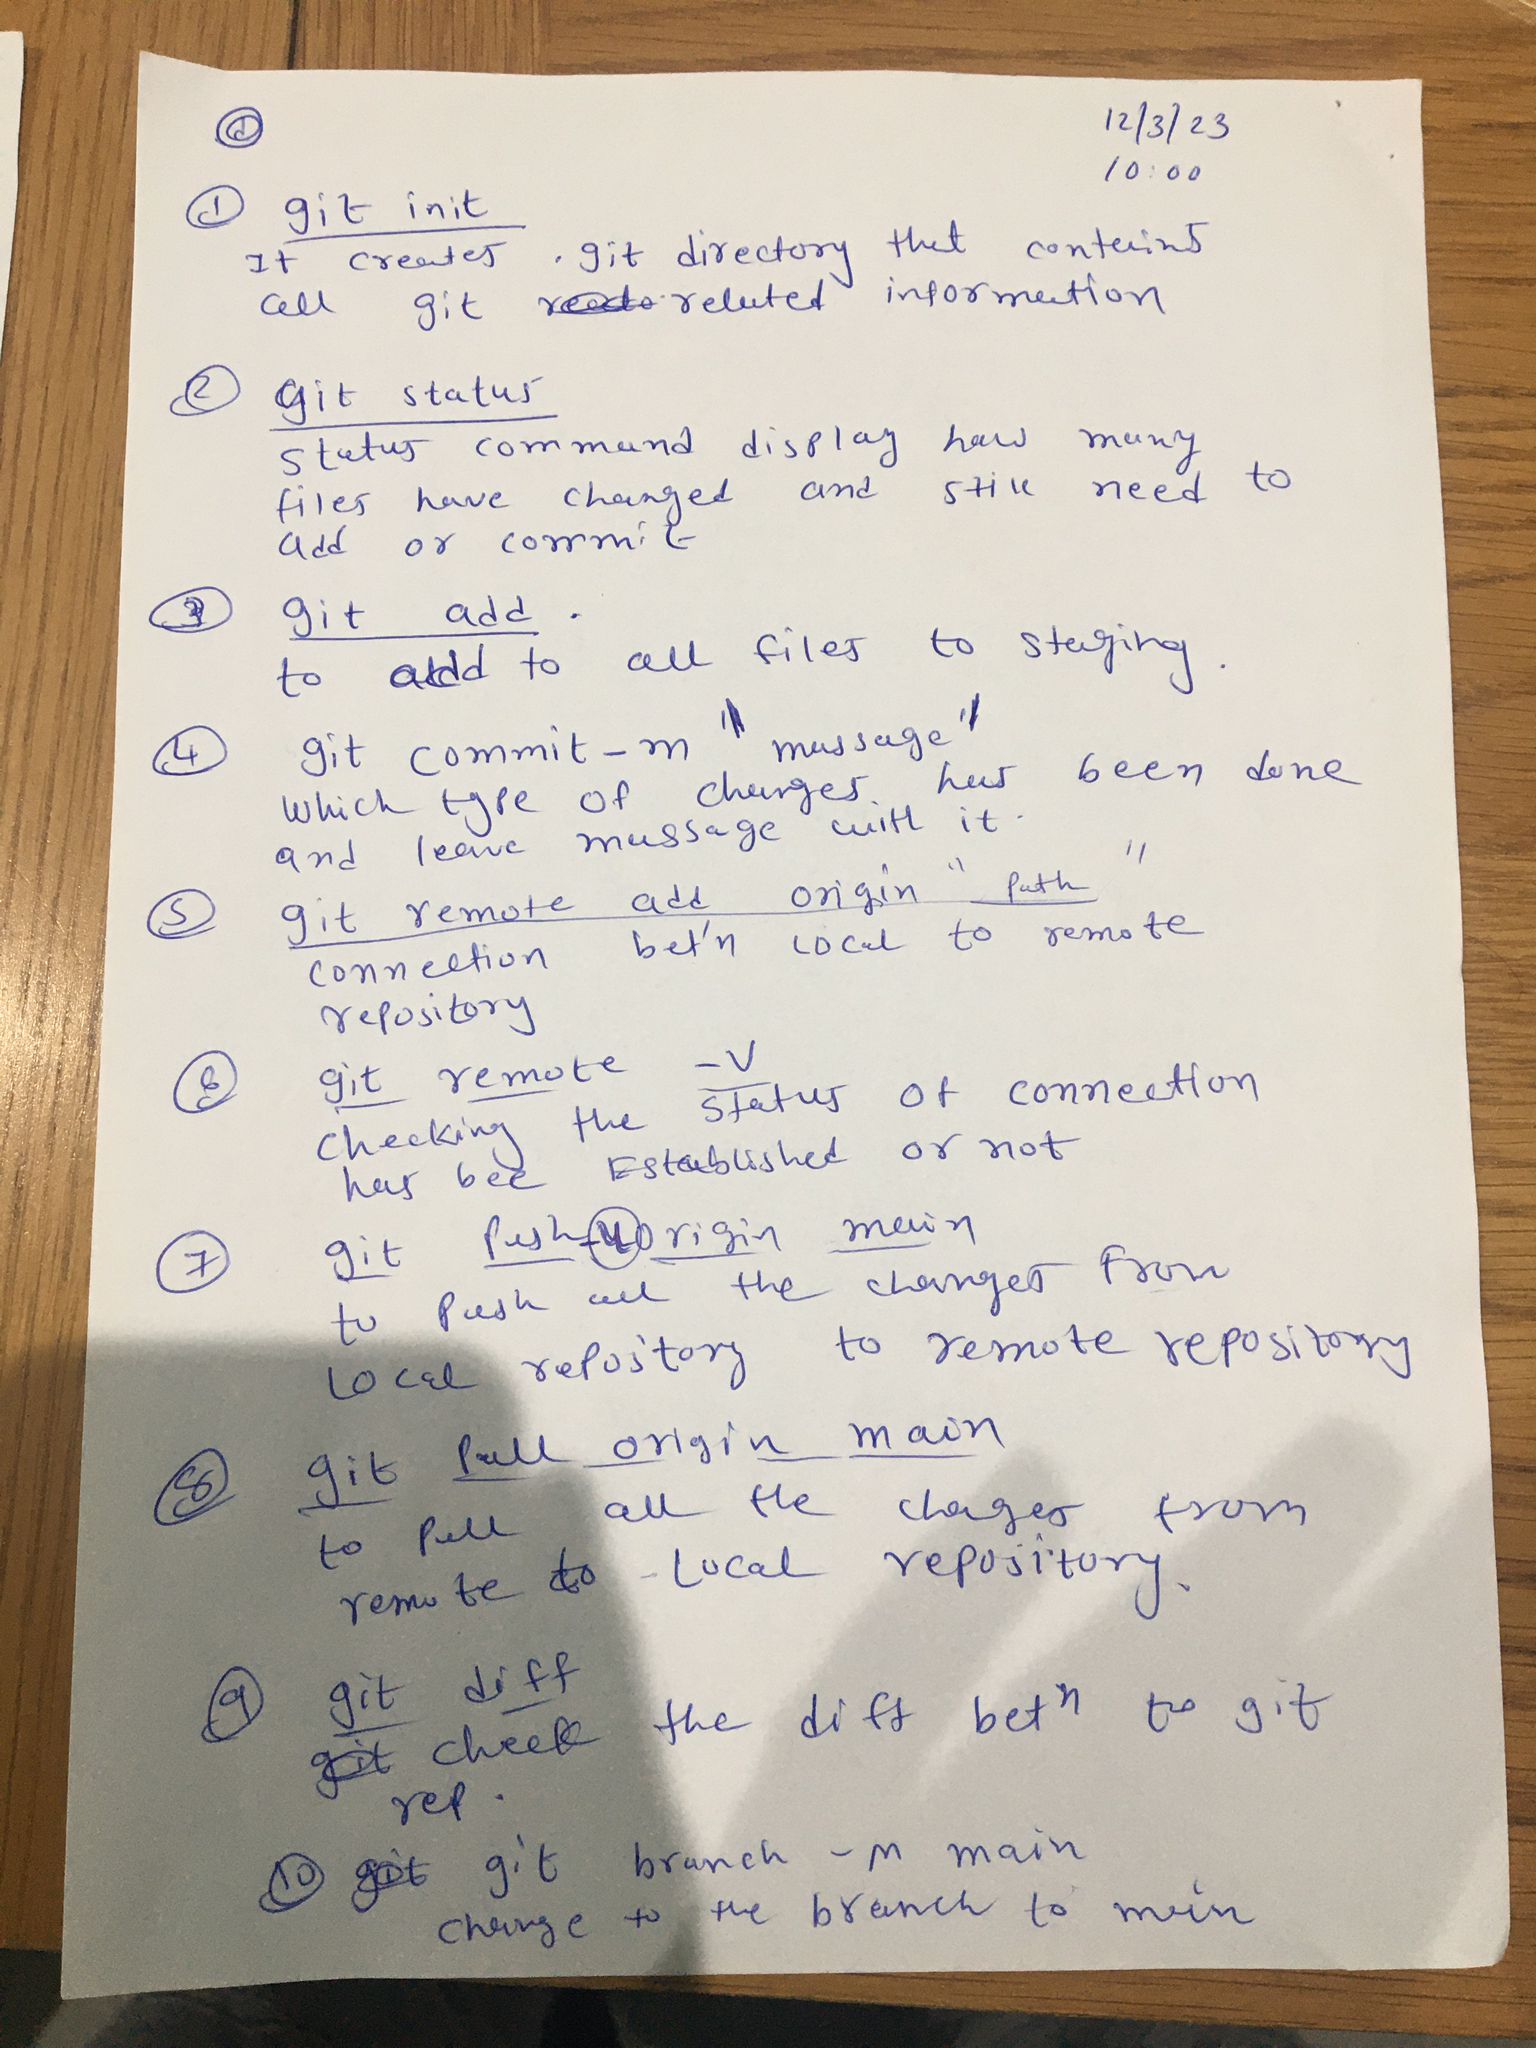 12/3/23
10:00
① git init
It creates .git directory that contains
all git related information
② Git status
status command display how many
files have changed and still need to
add or commit
③ git add .
to add to all files to staging.
④ git commit -m "massage"
which type of changes has been done
and leave massage with it.
⑤ git remote add origin "path"
connection bet'n local to remote
repository
git remote -v
checking the status of connection
has bee Established or not
⑦ git push -u origin main
to push all the changes from
local repository to remote repository
⑧ git pull origin main
to pull all the chages from
remote to local repository.
⑨ git diff
check the diff betn to git
rep.
⑩ git branch -M main
change to the branch to main